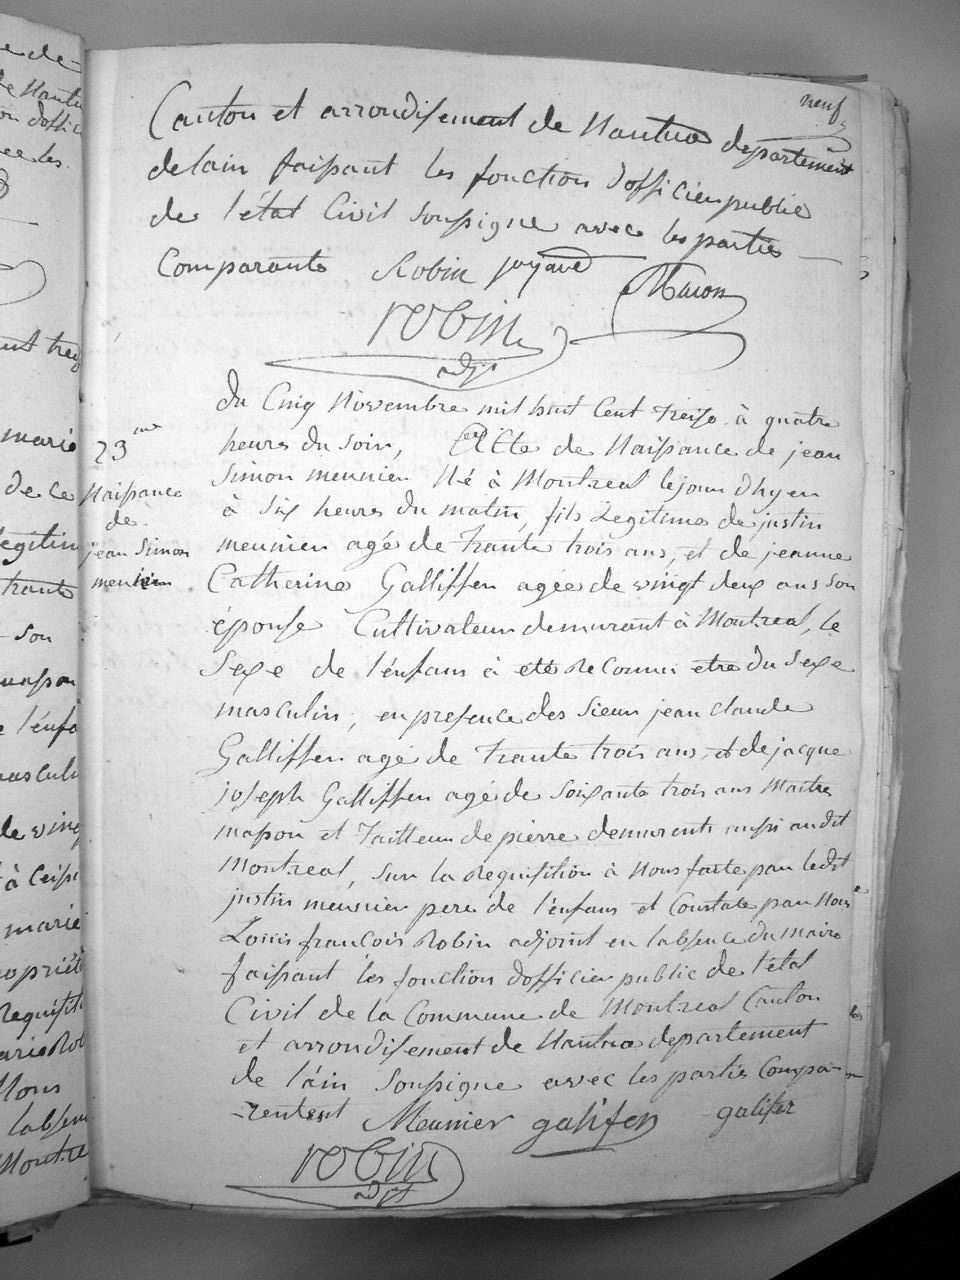 neuf
Canton et arrondisement de Nantua departement
delain faissant les fonction dofficier public
de l'état Civil soussigne avec les parties
Comparante Robin joyard Macon
robin
adjt
du Cinq Novembre mil huit Cent Treise à quatre
heures du soir, Acte de Naissance de jean
Simon meunier Né à Montreal lejour dhyer
à Six heures du matin, fils Legitime de justin
meunier agé de trante trois ans, et de jeanne
Catherine Galliffer agée de vingt deux ans son
épouse Cultivateur demurant à Montreal, le
Sexe de l'énfans à eté Reconnu etre du Sexe
masculin, en presence des Sieur jean claude
Galliffer agé de trante trois ans, et de jacque
joseph Galliffer agé de Soixante trois ans Maitre
masson et Tailleur de pierre demurent aussi audit
Montreal, Sur la Requisition à Nous faite par ledit
justin meunier pere de l'énfans et Constaté par Nous
Louis francois Robin adjoint en labsence du maire
faissant les fonction dofficier public de l'état
Civil de la Commune de Montreal Canton
et arrondisement de Nantua departement
de l'áin Soussigne avec les partie Compa-
-rentent Meunier galifer galifer
robin
adjt
23me
Naissance
de
jean Simon
meunier